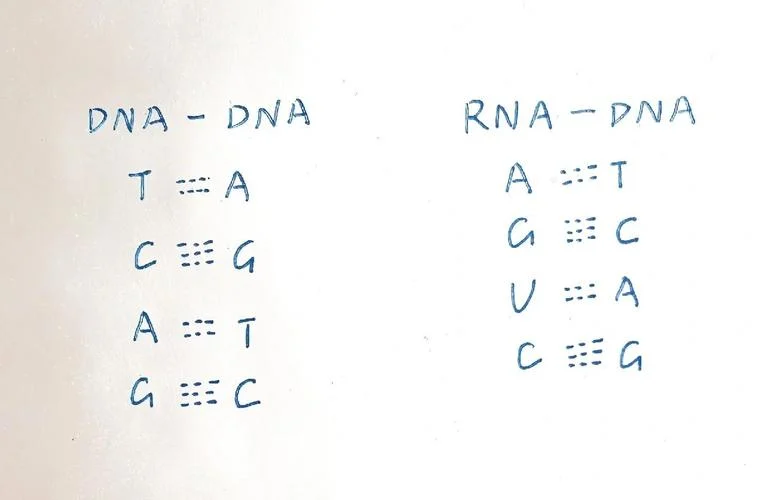 DNA - DNA
T == A
C ≡ G
A == T
G ≡ C
RNA - DNA
A == T
G ≡ C
U == A
C ≡ G